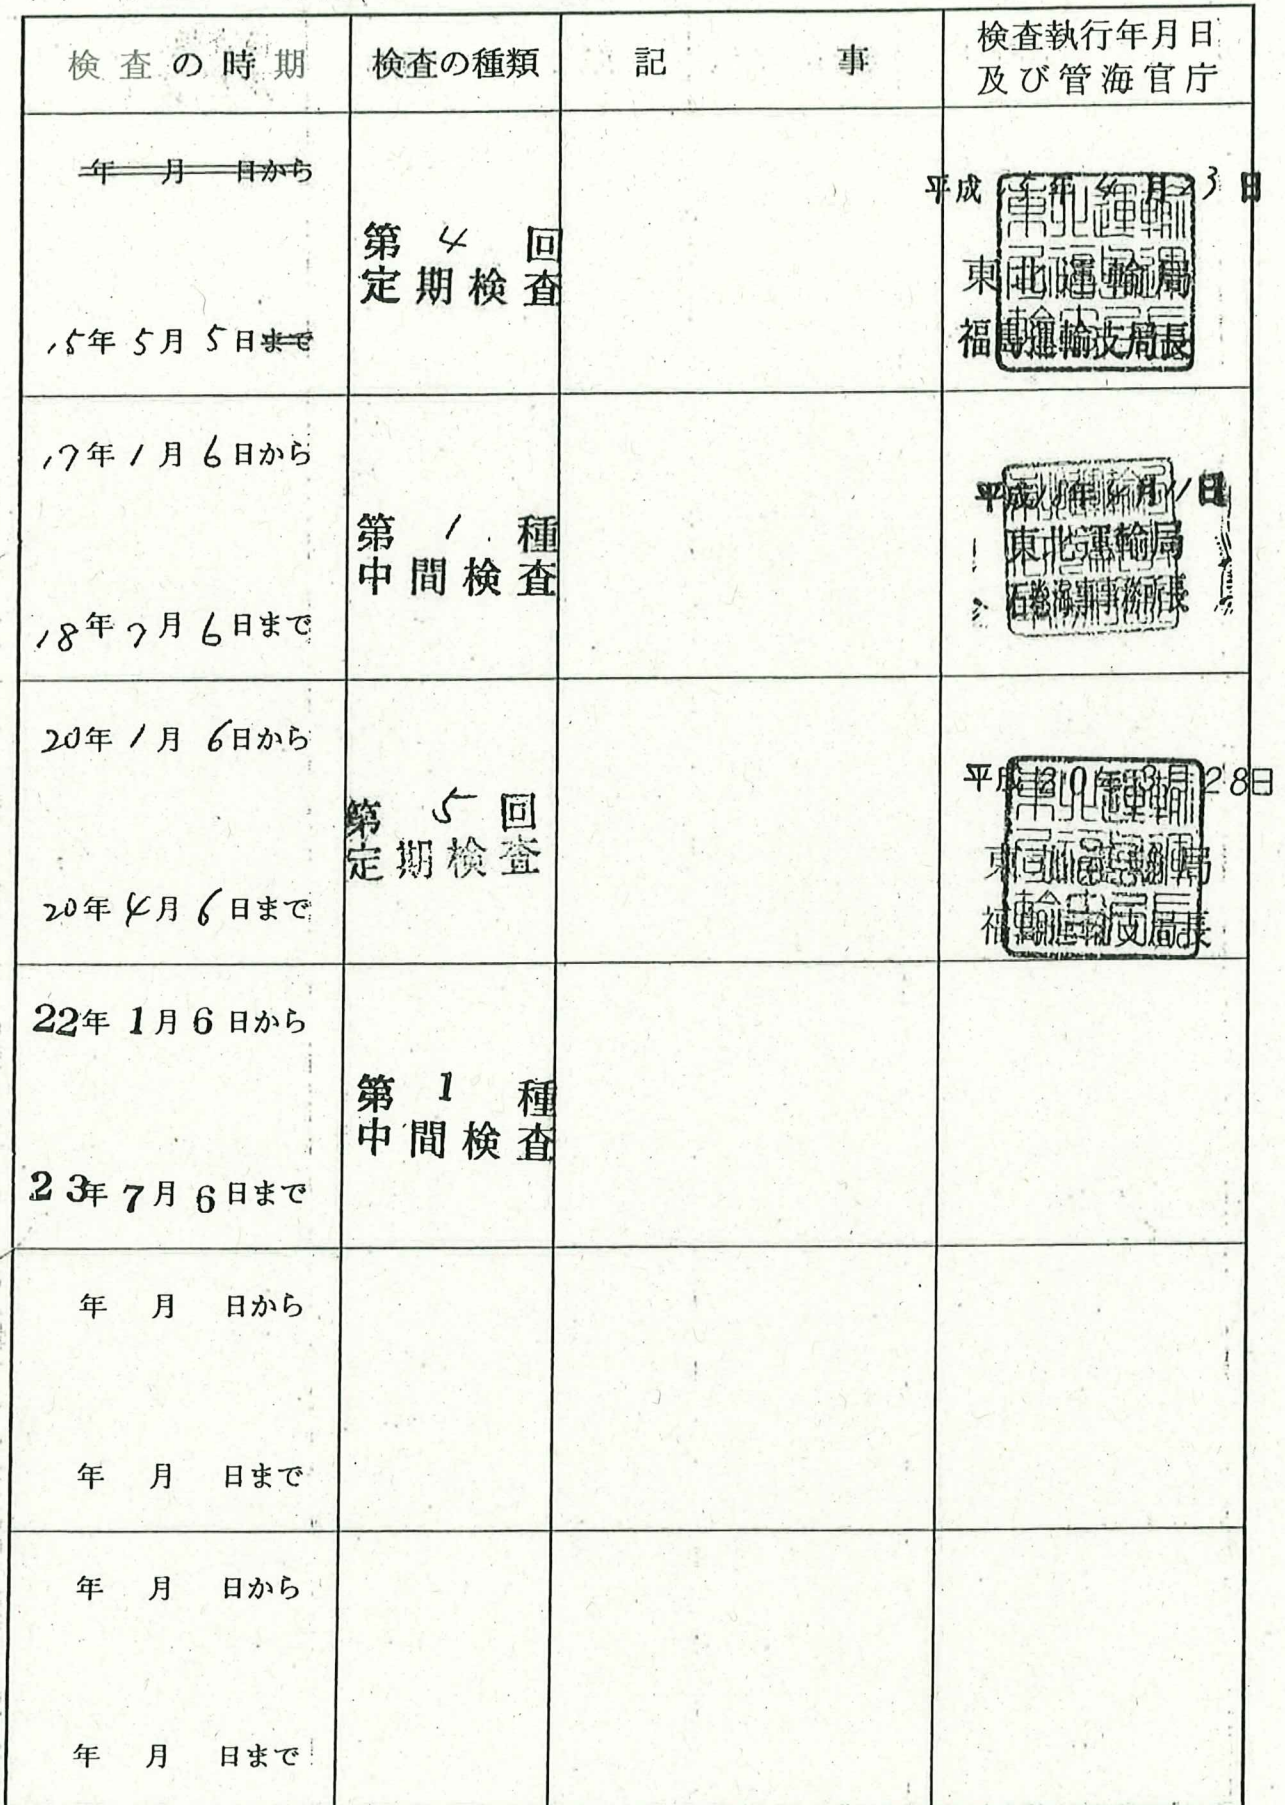 検査の時期
検査の種類
記事
検査執行年月日
及び管海官庁
年 月 日から
15年 5月 5日まで
第 4 回
定期検査
平成 年 月23日
東北運輸局
福島運輸支局長
17年 1月 6日から
18年 7月 6日まで
第 1 種
中間検査
平成 年 月 日
東北運輸局
石巻海事事務所長
20年 1月 6日から
20年 4月 6日まで
第 5 回
定期検査
平成20年3月28日
東北運輸局
福島運輸支局長
22年 1月 6日から
23年 7月 6日まで
第 1 種
中間検査
年 月 日から
年 月 日まで
年 月 日から
年 月 日まで